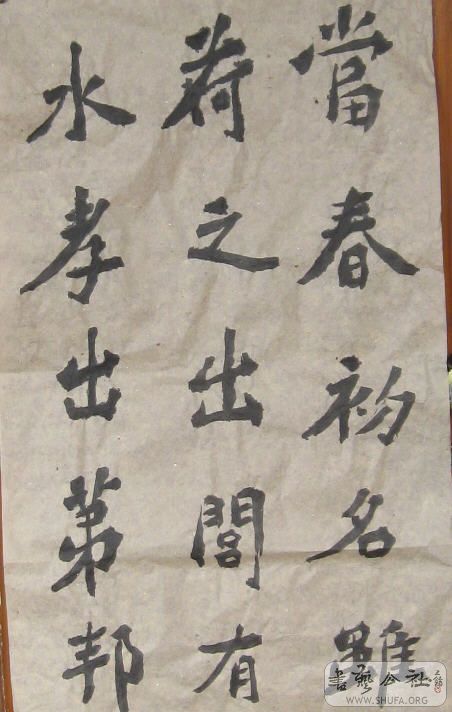 當春初名雖
荷之出閭有
水孝出第邦
書藝公社
WWW.SHUFA.ORG